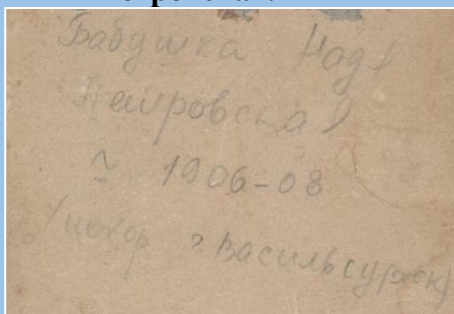 Бабушка Надя
Петровская
~ 1906-08
г Васильсурск)